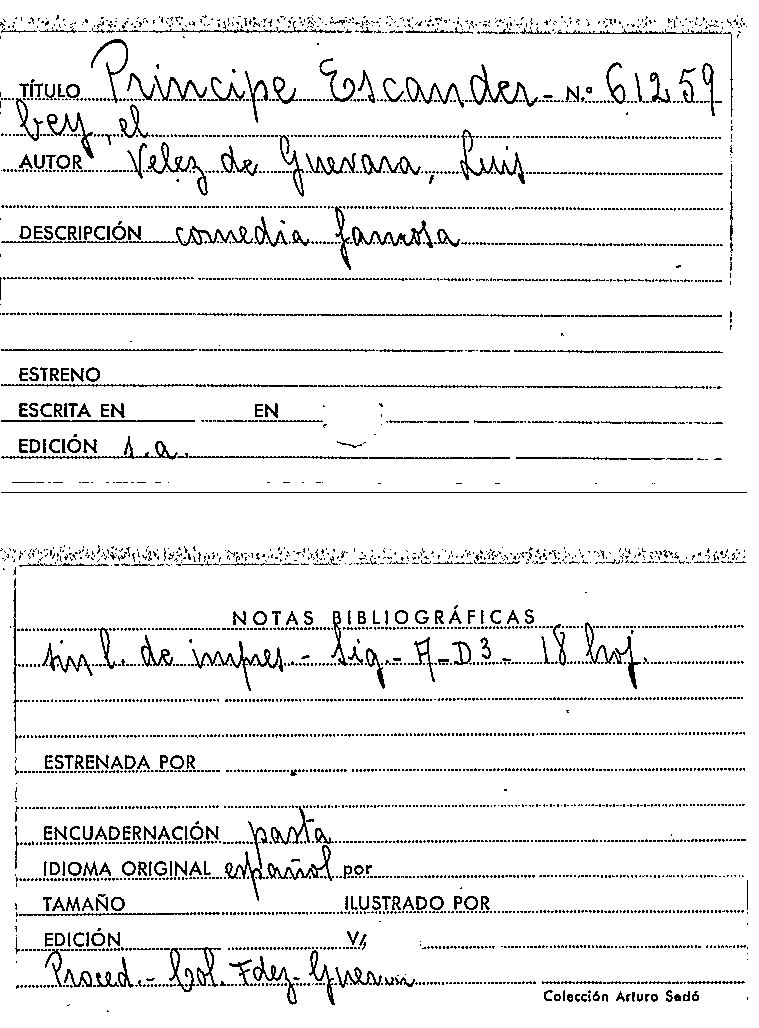 TÍTULO Principe Escander- N.º 61259
bey, el
AUTOR Velez de Guevara, Luis
DESCRIPCIÓN comedia famosa
ESTRENO
ESCRITA EN EN
EDICIÓN s.a.
NOTAS BIBLIOGRÁFICAS
sin l. de impres.- Sig.- A-D3- 18 hoj.
ESTRENADA POR
ENCUADERNACIÓN pasta
IDIOMA ORIGINAL español por
TAMAÑO ILUSTRADO POR
EDICIÓN
Proced.- Col. Fdez-Guerra
Colección Arturo Sedó